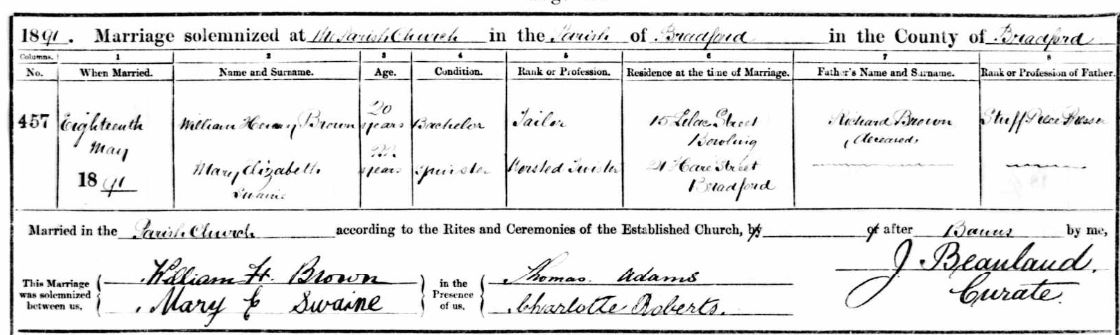 1891. Marriage solemnized at the Parish Church in the Parish of Bradford in the County of Bradford
Columns. 1 2 3 4 5 6 7 8
No. When Married. Name and Surname. Age. Condition. Rank or Profession. Residence at the time of Marriage. Father's Name and Surname. Rank or Profession of Father.
457 Eighteenth William Henry Brown 20 years Bachelor Tailor 15 Lilac Street Richard Brown Stuff Piece
May Bowling (deceased)
1891 Mary Elizabeth years Spinster Worsted Twister 21 Hare Street
Swaine Bradford
Married in the Parish Church according to the Rites and Ceremonies of the Established Church, by or after Banns by me,
This Marriage was solemnized between us, William H. Brown in the Presence of us, Thomas Adams J. Beanland.
Mary E Swaine Charlotte Roberts. Curate.